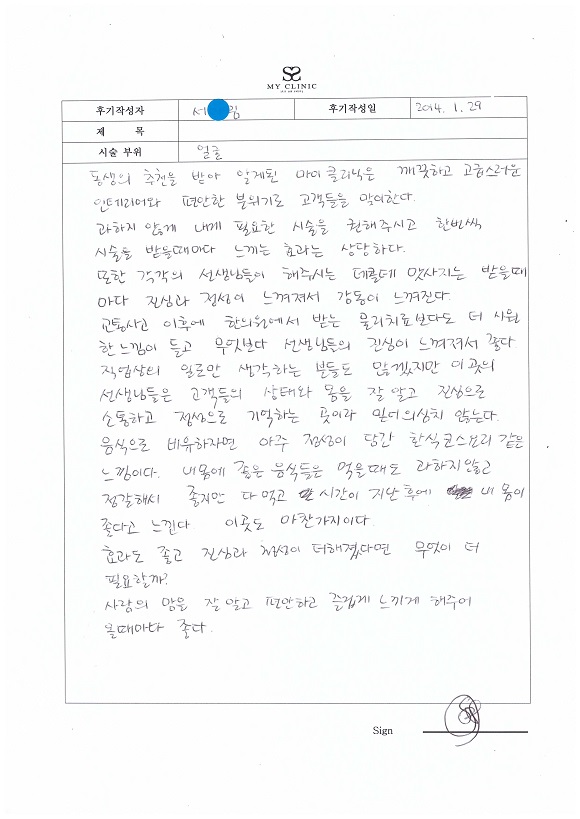 MY CLINIC
후기작성자 서 임 후기작성일 2014. 1. 29
제 목
시술 부위 얼굴
동생의 추천을 받아 알게된 마이클리닉은 깨끗하고 고급스러운
인테리어와 편안한 분위기로 고객들을 맞이한다.
과하지 않게 내게 필요한 시술을 권해주시고 한번씩
시술을 받을때마다 느끼는 효과는 상당하다.
또한 각각의 선생님들이 해주시는 데콜테 맛사지는 받을때
마다 진심과 정성이 느껴져서 감동이 느껴진다.
교통사고 이후에 한의원에서 받는 물리치료보다도 더 시원
한느낌이 들고 무엇보다 선생님들의 진심이 느껴져서 좋다
직업상의 일로만 생각하는 분들도 많겠지만 이곳의
선생님들은 고객들의 상태와 몸을 잘 알고 진심으로
소통하고 정성으로 기억하는 곳이라 믿어의심치 않는다.
음식으로 비유하자면 아주 정성이 담긴 한식코스요리 같은
느낌이다. 내몸에 좋은 음식들은 먹을때도 과하지않고
정갈해서 좋지만 다 먹고 시간이 지난 후에 내 몸이
좋다고 느낀다 이곳도 마찬가지이다.
효과도 좋고 진심과 정성이 더해졌다면 무엇이 더
필요할까?
사람의 맘을 잘 알고 편안하고 즐겁게 느끼게 해주어
올때마다 좋다.
Sign